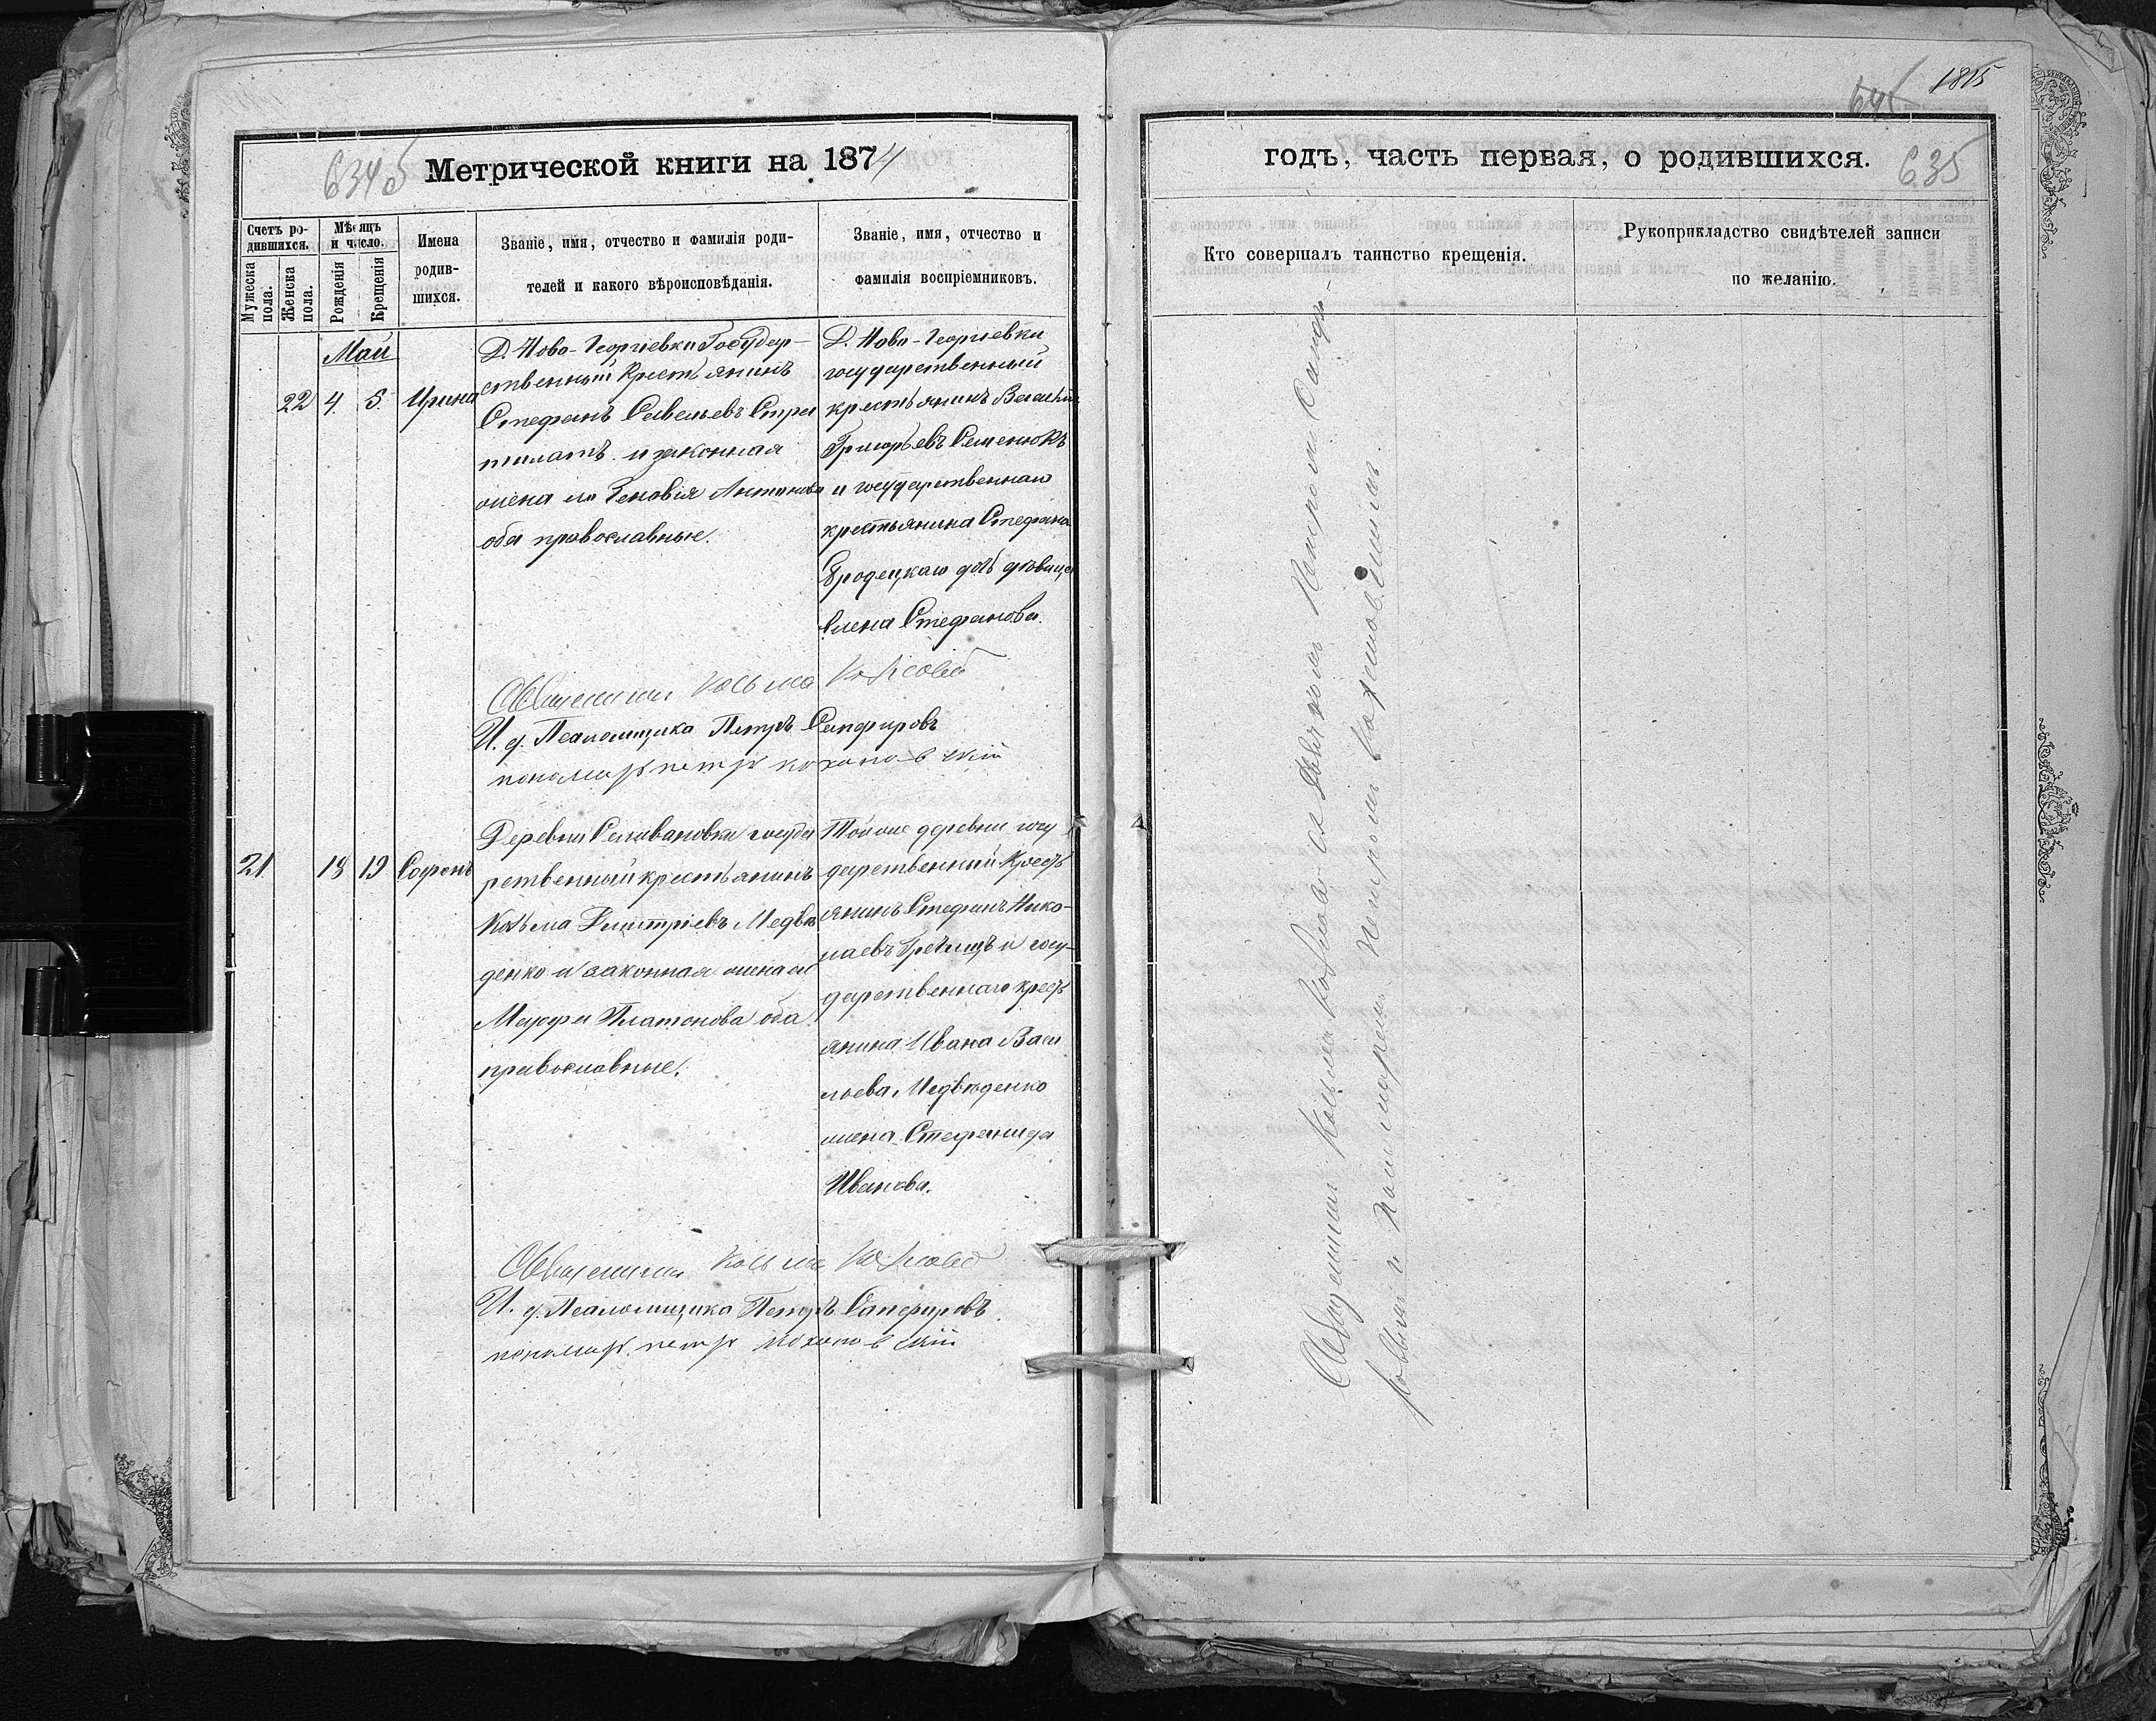 634 об
Метрической книги на 1874
Счетъ ро-
дившихся.
Мужеска пола.
Женска пола.
Мѣсяцъ
и число.
Рожденія
Крещенія
Имена
родив-
шихся.
Званіе, имя, отчество и фамилія роди-
телей и какого вѣроисповѣданія.
Званіе, имя, отчество и
фамилія воспріемниковъ.
Май
22 4. 5. Ирина
Д. Ново-Георгіевки Государ-
ственный крестьянинъ
Стефанъ Савельевъ Стра
тилатъ и законная
жена его Зеновія Антонова
оба православные.
Д. Ново-Георгіевки
государственный
крестьянинъ Василій
Григорьевъ Семенюкъ
и государственнаго
крестьянина Стефана
Бродецкаго дочь дѣвица
Елена Стефанова.
Священникъ Косьма
И. д. Псаломщика Петръ Сапфировъ
пономарь петръ
21. 18 19 Софонъ
Деревни Селивановки госуда
рственный крестьянинъ
Козьма Дмитріевъ Медвѣ
денко и законная жена его
Марфа Платонова оба
православные.
Той же деревни госу
дарственный Кресть
янинъ Стефанъ Нико-
лаевъ и госу-
дарственнаго кресть
янина Ивана Васи
льева Медвѣденко
жена Стефанида
Иванова.
Священникъ Косьма
И. д. Псаломщика Петръ Сапфировъ.
пономарь петръ
1815
635
годъ, часть первая, о родившихся.
Кто совершалъ таинство крещенія.
Рукоприкладство свидѣтелей записи
по желанію.
Священникъ Косьма съ Петромъ Сапфи-
ровымъ и пономаремъ Петромъ